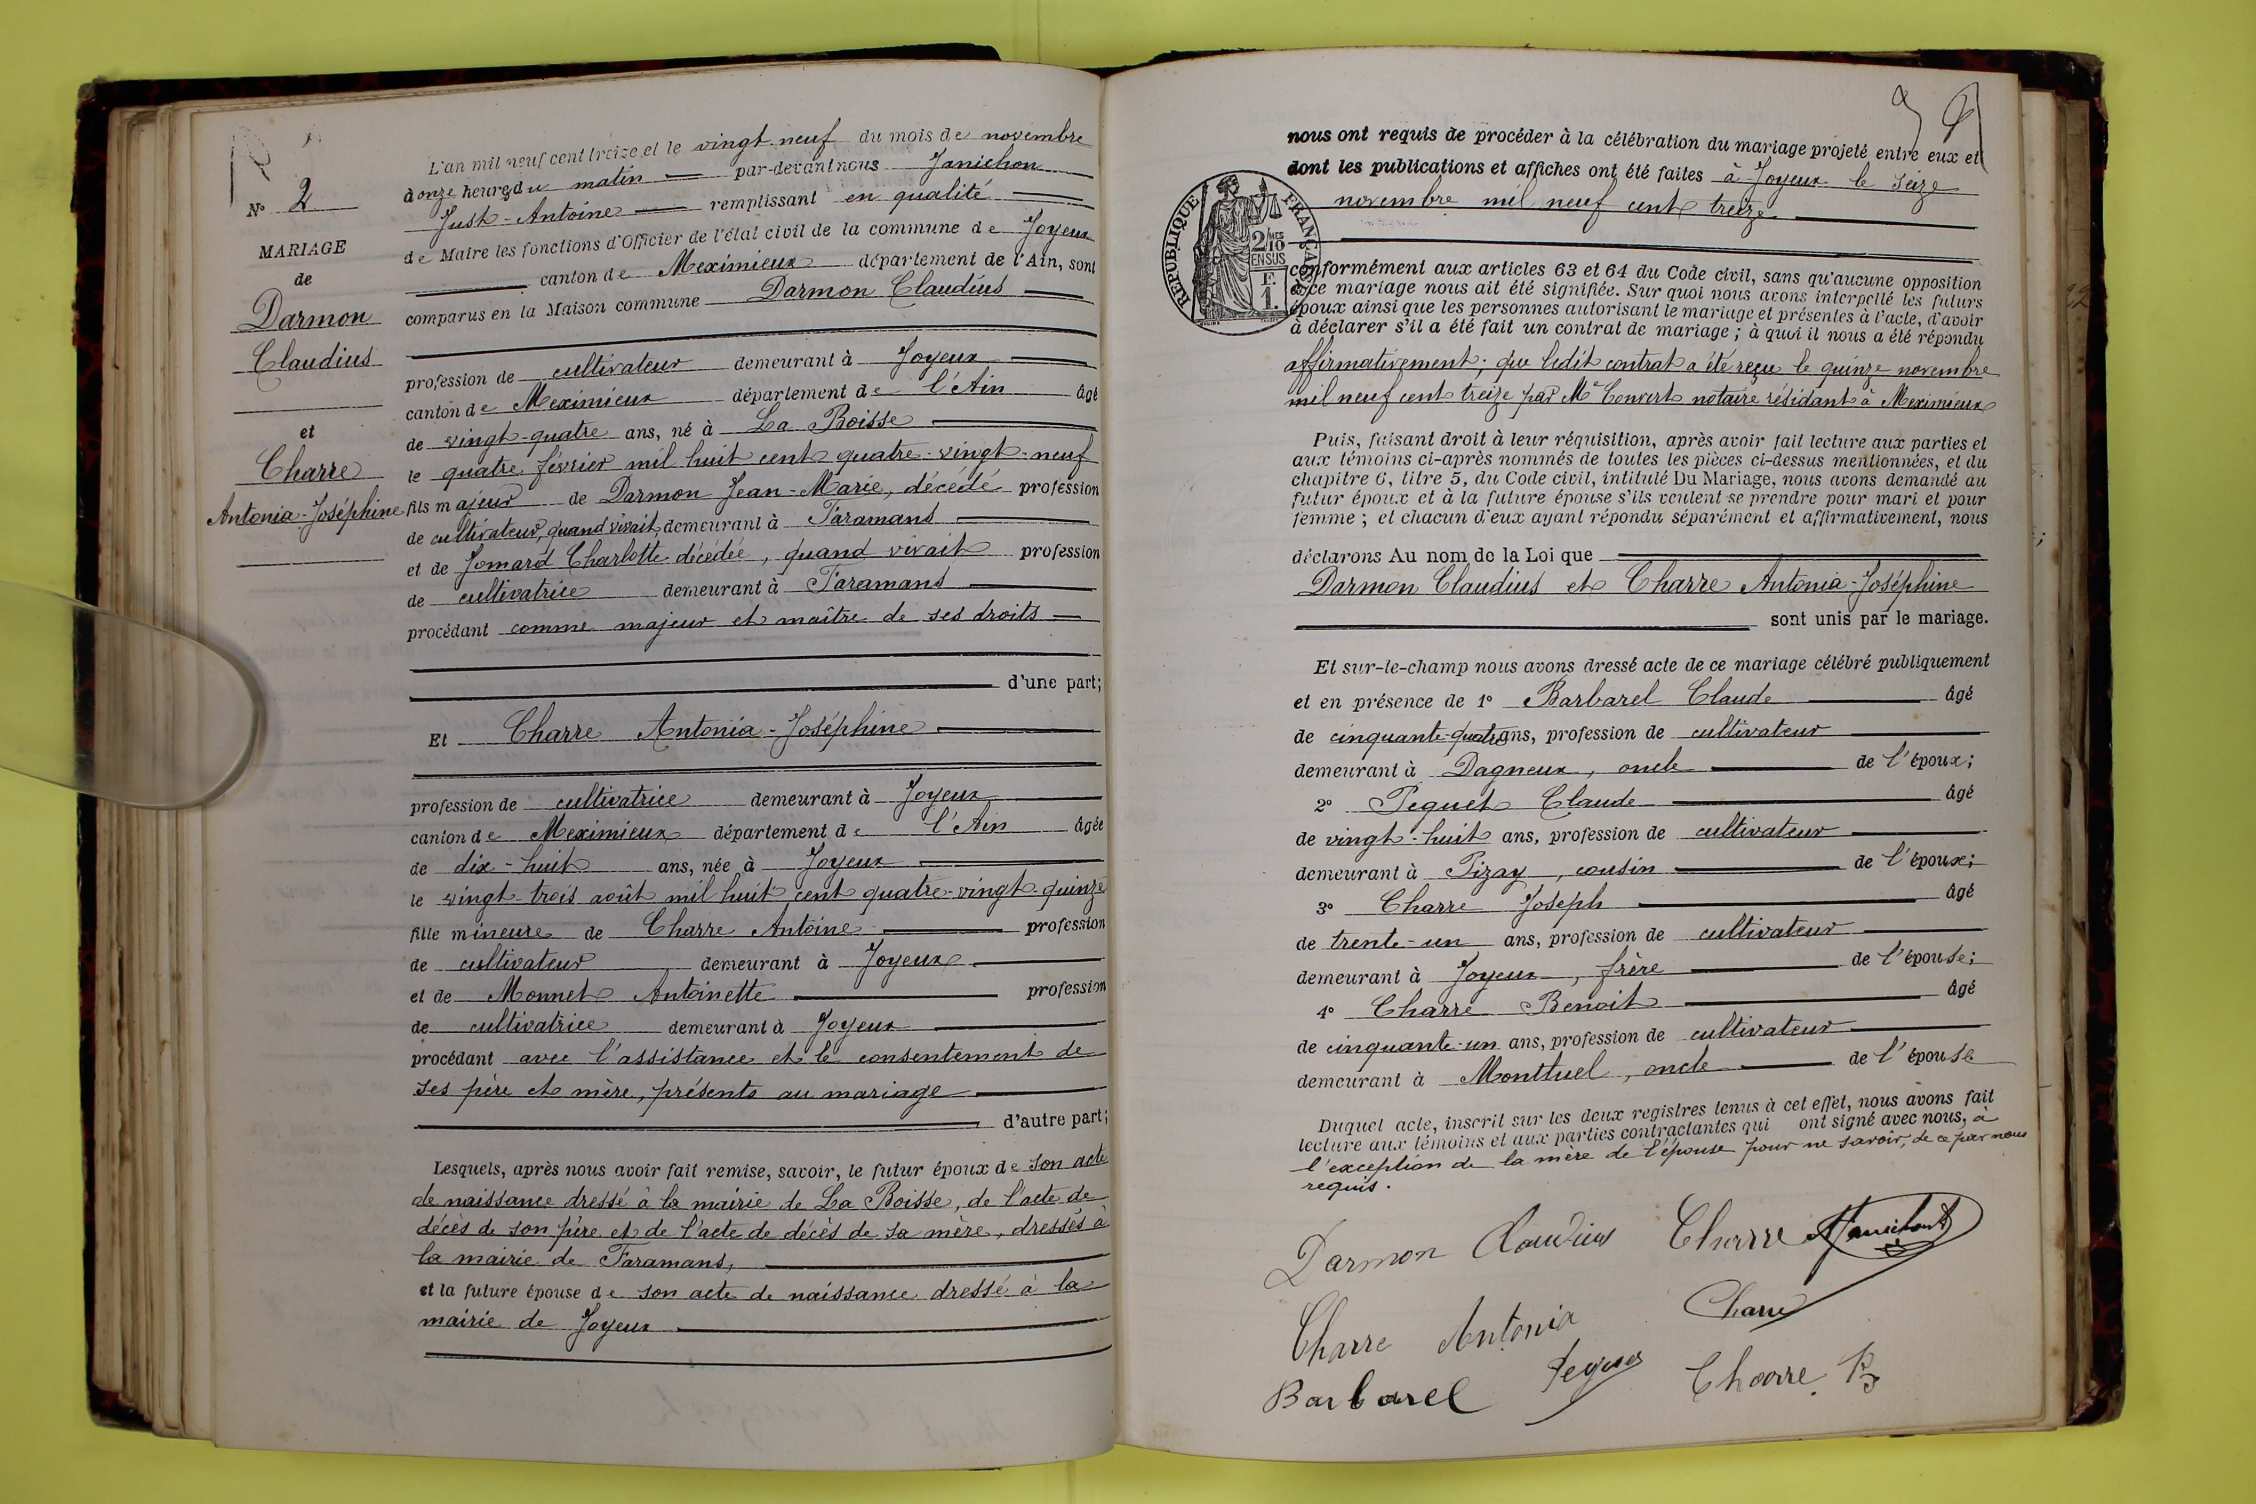 N° 2
MARIAGE
de
Darmon
Claudius
et
Charre
Antonia-Joséphine
L'an mil neuf cent treize et le vingt-neuf du mois de novembre
à onze heures du matin par-devant nous Janichon
Just-Antoine remplissant en qualité
de Maire les fonctions d'Officier de l'état civil de la commune de Joyeux
canton de Meximieux département de l'Ain, sont
comparus en la Maison commune Darmon Claudius
profession de cultivateur demeurant à Joyeux
canton de Meximieux département de l'Ain âgé
de vingt-quatre ans, né à La Boisse
le quatre février mil huit cent quatre-vingt-neuf
fils majeur de Darmon Jean-Marie, décédé profession
de cultivateur, quand vivait, demeurant à Faramans
et de Jomard Charlotte décédée, quand vivait profession
de cultivatrice demeurant à Faramans
procédant comme majeur et maître de ses droits
d'une part;
Et Charre Antonia-Joséphine
profession de cultivatrice demeurant à Joyeux
canton de Meximieux département de l'Ain âgée
de dix-huit ans, née à Joyeux
le vingt-trois août mil huit cent quatre-vingt-quinze
fille mineure de Charre Antoine profession
de cultivateur demeurant à Joyeux
et de Monnet Antoinette profession
de cultivatrice demeurant à Joyeux
procédant avec l'assistance et le consentement de
ses père et mère, présents au mariage
d'autre part;
Lesquels, après nous avoir fait remise, savoir, le futur époux de son acte
de naissance dressé à la mairie de La Boisse, de l'acte de
décès de son père et de l'acte de décès de sa mère, dressés à
la mairie de Faramans,
et la future épouse de son acte de naissance dressé à la
mairie de Joyeux
nous ont requis de procéder à la célébration du mariage projeté entre eux et
dont les publications et affiches ont été faites à Joyeux le seize
novembre mil neuf cent treize
RÉPUBLIQUE FRANÇAISE
2/10 MES
EN SUS
F.
1.
conformément aux articles 63 et 64 du Code civil, sans qu'aucune opposition
à ce mariage nous ait été signifiée. Sur quoi nous avons interpellé les futurs
époux ainsi que les personnes autorisant le mariage et présentes à l'acte, d'avoir
à déclarer s'il a été fait un contrat de mariage; à quoi il nous a été répondu
affirmativement; que ledit contrat a été reçu le quinze novembre
mil neuf cent treize par Me Convert notaire résidant à Meximieux
Puis, faisant droit à leur réquisition, après avoir fait lecture aux parties et
aux témoins ci-après nommés de toutes les pièces ci-dessus mentionnées, et du
chapitre 6, titre 5, du Code civil, intitulé Du Mariage, nous avons demandé au
futur époux et à la future épouse s'ils veulent se prendre pour mari et pour
femme; et chacun d'eux ayant répondu séparément et affirmativement, nous
déclarons Au nom de la Loi que
Darmon Claudius et Charre Antonia-Joséphine
sont unis par le mariage.
Et sur-le-champ nous avons dressé acte de ce mariage célébré publiquement
et en présence de 1° Barbarel Claude âgé
de cinquante-quatre ans, profession de cultivateur
demeurant à Dagneux, oncle de l'époux;
2° Pequet Claude âgé
de vingt-huit ans, profession de cultivateur
demeurant à Pizay, cousin de l'époux;
3° Charre Joseph âgé
de trente-un ans, profession de cultivateur
demeurant à Joyeux, frère de l'épouse;
4° Charre Benoit âgé
de cinquante-un ans, profession de cultivateur
demeurant à Montluel, oncle de l'épouse
Duquel acte, inscrit sur les deux registres tenus à cet effet, nous avons fait
lecture aux témoins et aux parties contractantes qui ont signé avec nous, à
l'exception de la mère de l'épouse pour ne savoir, de ce par nous
requis.
Darmon Claudius Charre Janichon
Charre Antonia Charre
Barbarel Pequet Charre B